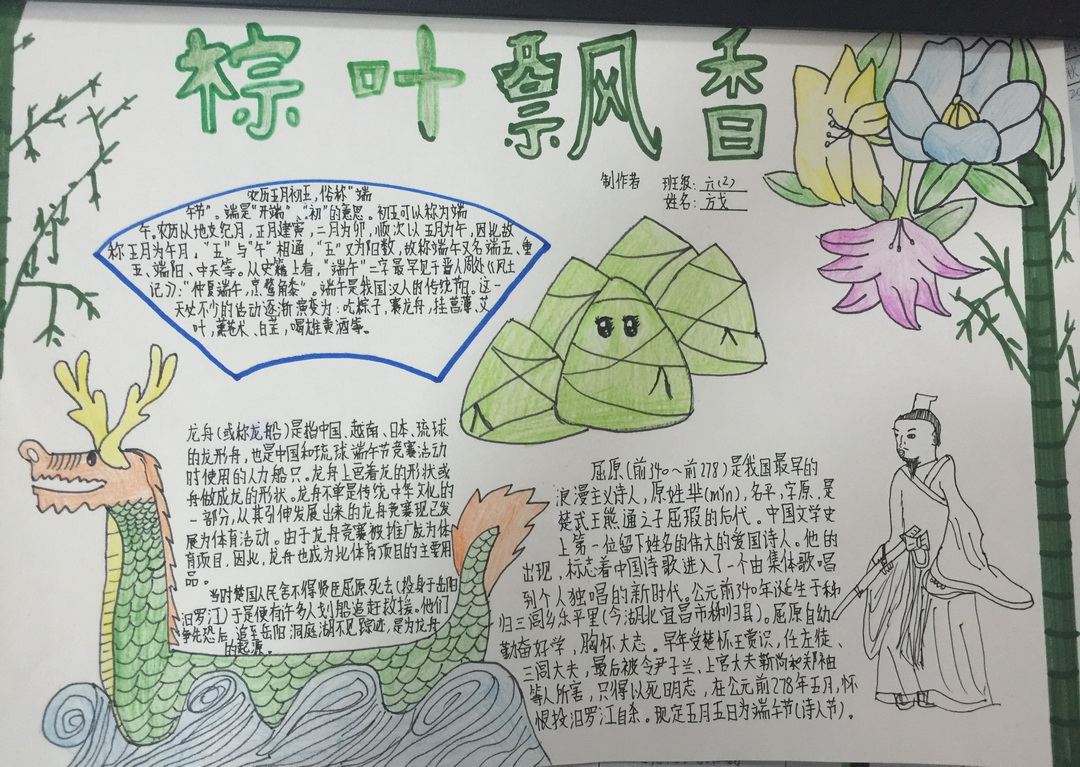 棕叶飘香
制作者 班级：六(2)
姓名：方戈
农历五月初五，俗称"端
午节"。端是"开端"、"初"的意思。初五可以称为端
午。农历以地支纪月，正月建寅，二月为卯，顺次以五月为午，因此故
称五月为午月，"五"与"午"相通，"五"又为阳数，故称端午又名端五、重
五、端阳、中天等。从史籍上看，"端午"二字最早见于晋人周处《风土
记》："仲夏端午，烹鹜角黍"。端午是我国汉人的传统节日。这一
天必不少的活动逐渐演变为：吃粽子，赛龙舟，挂菖蒲、艾
叶，薰苍术、白芷，喝雄黄酒等。
龙舟(或称龙船)是指中国、越南、日本、琉球
的龙形舟，也是中国和琉球端午节竞赛活动
时使用的人力船只。龙舟上画着龙的形状或
舟做成龙的形状。龙舟不单是传统中华文化的
一部分，从其引伸发展出来的龙舟竞赛现已发
展为体育活动。由于龙舟竞赛被推广成为体
育项目，因此，龙舟也成为此体育项目的主要用
品。
当时楚国人民舍不得贤臣屈原死去(投身于岳阳
汨罗江)于是便有许多人划船追赶救援。他们
争先恐后，追至岳阳洞庭湖不见踪迹，是为龙舟
的起源。
屈原(前340～前278)是我国最早的
浪漫主义诗人，原姓芈(mǐn)，名平，字原，是
楚武王熊通之子屈瑕的后代。中国文学史
上第一位留下姓名的伟大的爱国诗人。他的
出现，标志着中国诗歌进入了一个由集体歌唱
到个人独唱的新时代。公元前340年诞生于秭
归三闾乡乐平里(今湖北宜昌市秭归县)。屈原自幼
勤奋好学，胸怀大志。早年受楚怀王赏识，任左徒、
三闾大夫，最后被令尹子兰、上官大夫靳尚和郑袖
等人所害，只得以死明志，在公元前278年五月，怀
恨投汨罗江自杀。现定五月五日为端午节(诗人节)。